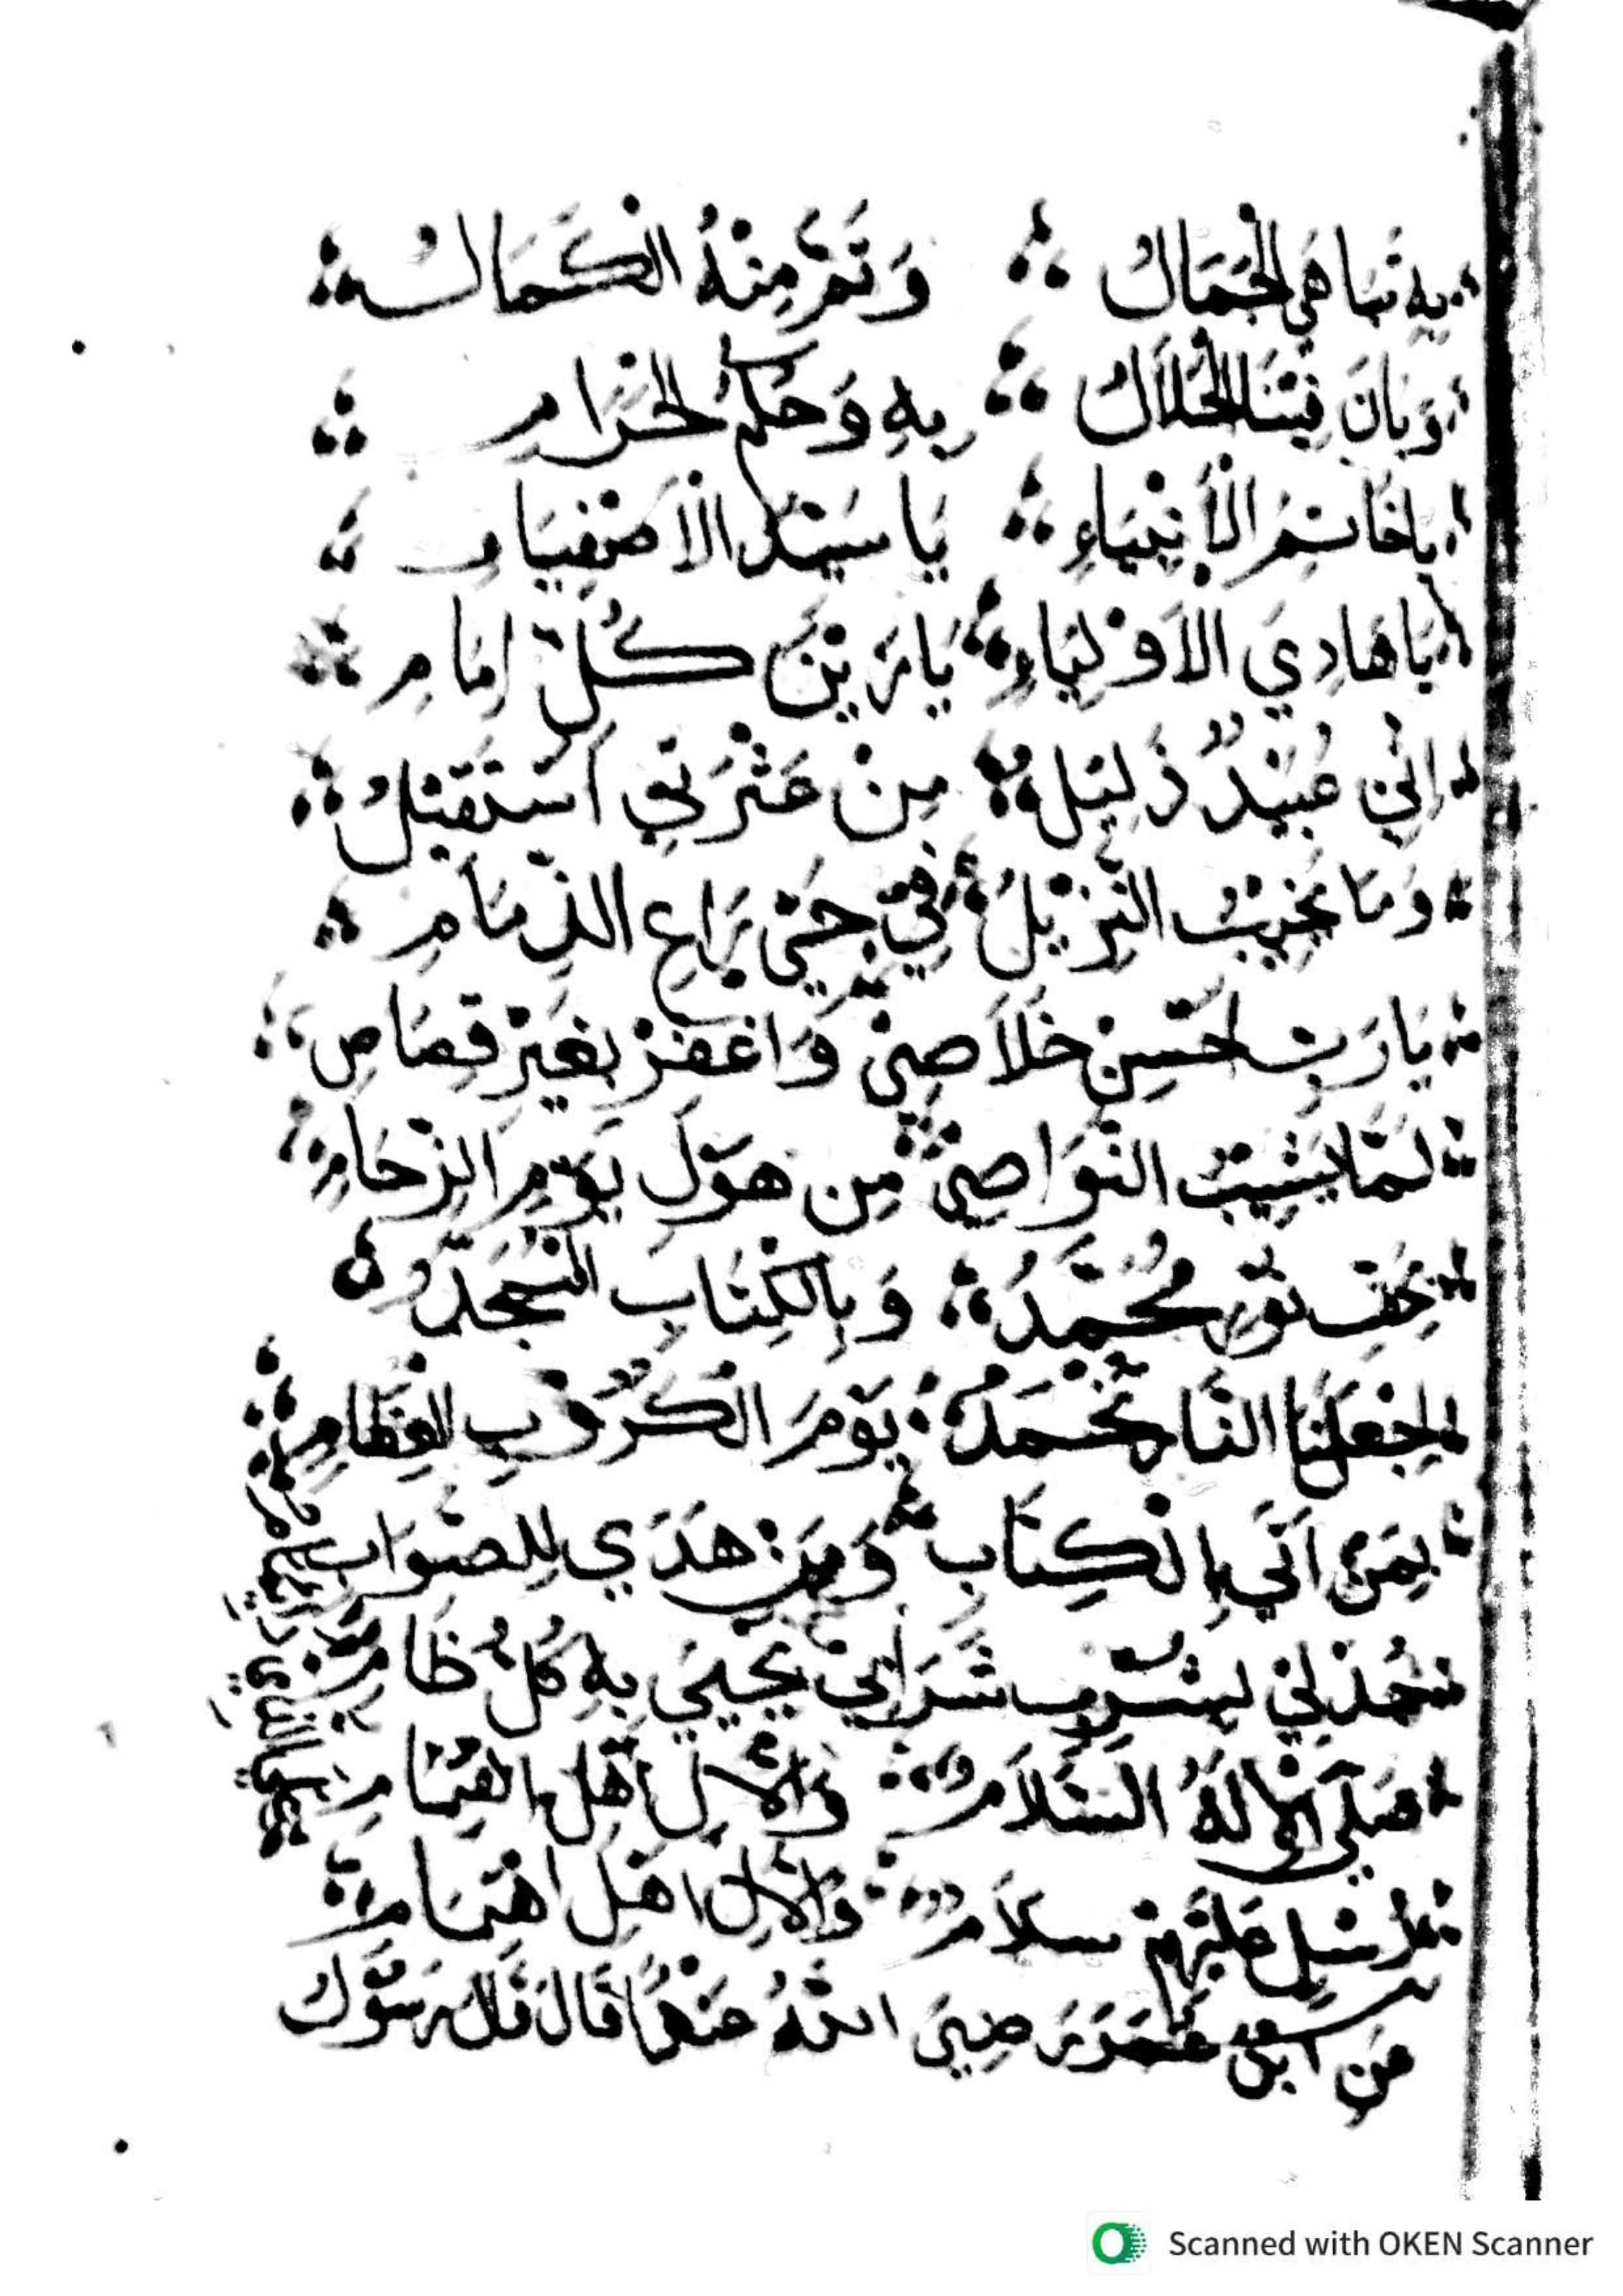 بِهِ تَبَاهَى الْجَمَالُ وَتَمَّ مِنْهُ الْكَمَالُ
وَبَانَ فِيْنَا الْحَلَالُ بِهِ وَحُكْمُ الْحَرَامِ
يَا خَاتِمُ الْأَنْبِيَاءِ يَا سَيِّدُ الْأَصْفِيَاءِ
يَا هَادِيَ الْأَوْلِيَاءِ يَا زَيْنَ كُلِّ إِمَامِ
إِنِّي عُبَيْدٌ ذَلِيْلُ مِنْ عَثْرَتِي أَسْتَقِيْلُ
وَمَا يَخِيْبُ النَّزِيْلُ فِيْ حَيِّ رَاعِ الذِّمَامِ
يَا رَبِّ أَحْسِنْ خَلَاصِيْ وَاغْفِرْ بِغَيْرِ قِصَاصِ
لَمَّا يَشِيْبُ النَّوَاصِيْ مِنْ هَوْلِ يَوْمِ الزِّحَامِ
مُحَمَّدُ وَبِالْكِتَابِ
اجْعَلْنَا النَّارَ تَخْمَدُ يَوْمَ الْكُرُوْبِ الْعِظَامِ
بِمَنْ أَتَى بِالْكِتَابِ وَمَنْ هَدَى لِلصَّوَابِ
جُدْ لِيْ بِشُرْبِ شَرَابِيْ يُحْيِيْ بِهِ كُلُّ ظَامِ
صَلَّى الْإِلَهُ السَّلَامُ وَالْآلِ أَهْلِ
عَلَيْهِمْ سَلَامُ وَالْآلِ أَهْلِ اهْتِمَامِ
عَنِ ابْنِ عُمَرَ رَضِيَ اللهُ عَنْهُمَا قَالَ قَالَ رَسُوْلُ
Scanned with OKEN Scanner